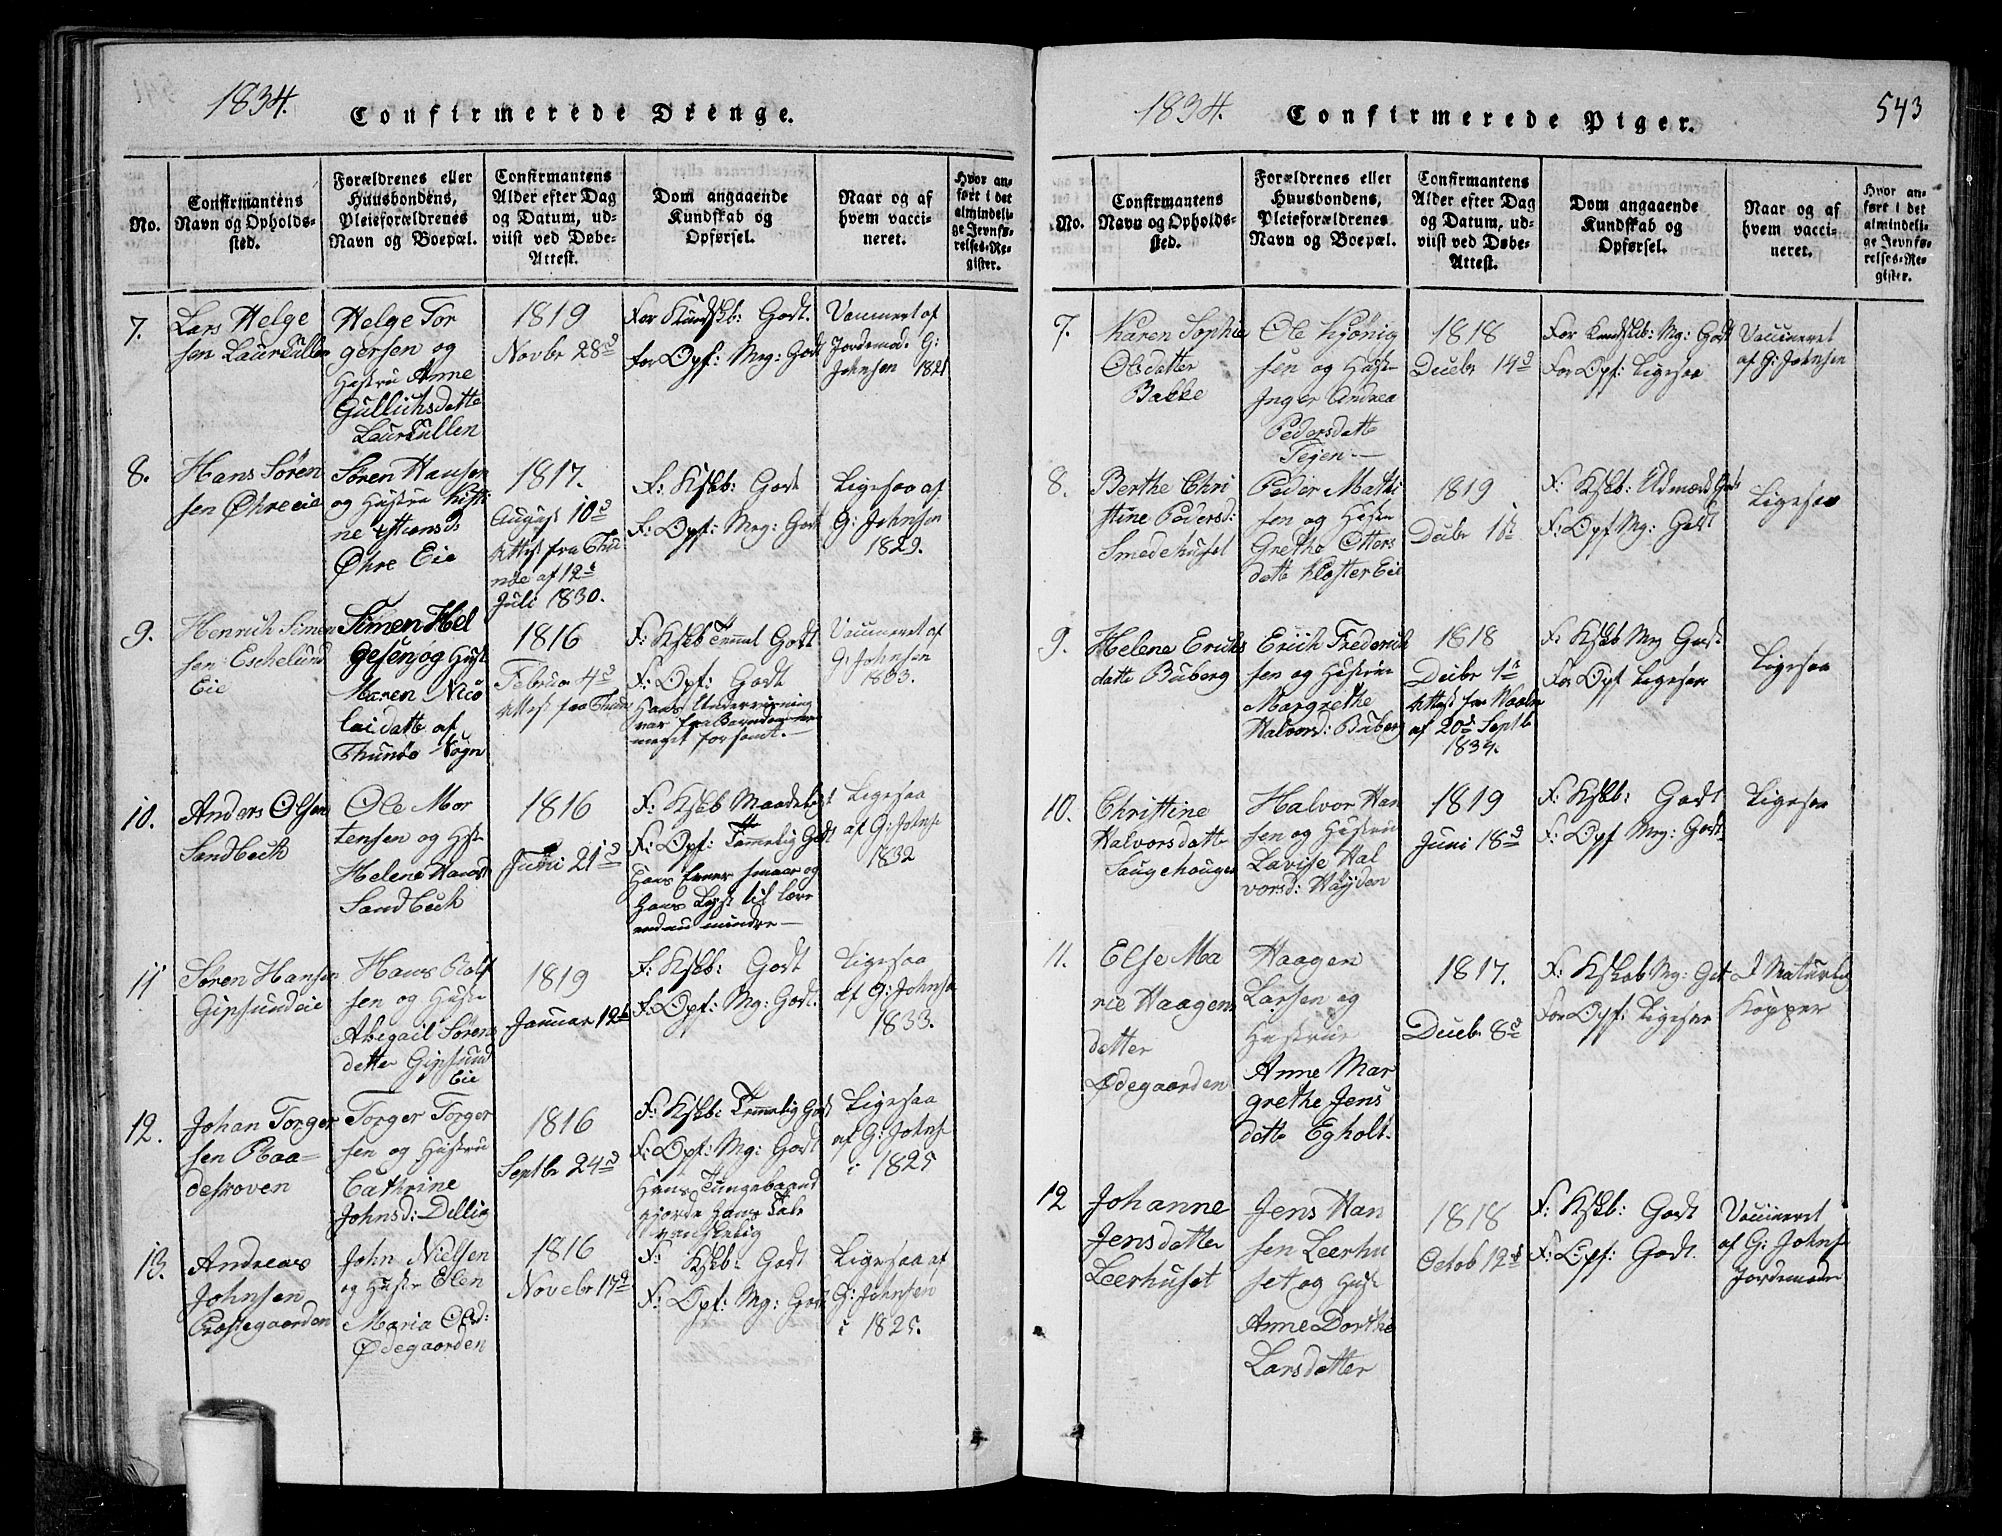 1834.
Confirmerede Drenge.
No.
Confirmantens
Navn og Opholds-
sted.
Forældrenes eller
Huusbondens,
Pleieforældrenes
Navn og Boepæl.
Confirmantens
Alder efter Dag
og Datum, ud-
viist ved Døbe-
Attest.
Dom angaaende
Kundskab og
Opførsel.
Naar og af
hvem vacci-
neret.
Hvor an-
ført i det
almindeli-
ge Jevnfø-
relses-Re-
gister.
7.
Lars Helge
sen
Helge Tor
gersen og
Hustru Anne
Gullichsdatte
1819
Novbr 28d
For Kundskb: Godt.
for Opf: Meg: Godt
Vaccineret af
Jordemod. G:
Johnsen 1821
8.
Hans Søren
sen Øhre eie
Søren Hansen
og Hustrue
Øhre Eie
1817.
August 10d
Attest fra Thu
nøe af 12t
Juli 1830.
F: Kskb: Godt
F: Opf: Meg: Godt
Ligesaa af
G: Johnsen
1829.
9.
Henrich Simen
sen Eschelund
Eie
Simen Hel
gesen og Hust
Maren Nico
laidatte af
Thunøe Sogn
1816
Februar 4d
Attest fra Thunø
F: Kskb Temmel Godt
F: Opf: Godt
Hans Underviisning
var fra Barndommen
meget forsømt.
Vaccineret af
G: Johnsen
1833.
10.
Anders Olsen
Sandbech
Ole Mor
tensen og Hst
Helene Hansd
Sandbech
1816
Juni 21d
F: Kskb Maadeligt
F: Opf: Temmelig Godt
Hans Evner smaae og
Hans Lyst til lære
endnu mindre
Ligesaa
af G: Johns
1832
11
Søren Hansen
Gipsund eie
Hans Rolf
sen og Hustru
Abigail Sørens
datter Gipsund
Eie
1819
Januar 12t
F: Kskb: Godt
F: Opf: Mg: Godt.
Ligesaa
af G: Johnse
1833.
12.
Johan Torger
sen Raa-
deskoven
Torger Torger
sen og Hustru
Cathrine
Johnsd: Dilling
1816
Septbr 24d
F: Kskb: Temmelig Godt
F: Opf: Mg: Godt
Hans Tungebaand
gjorde Hans Tale
vanskelig
Ligesaa
af G: Johns
i 1825
13.
Andreas
Johnsen
Prestegaarden
John Nielsen
og Hustr Elen
Maria Olsd:
Ødegaarden
1816
Novebr 17d
F: Kskb: Godt
F: Opf: Mg: Godt
Ligesaa af
G: Johnsen
i 1825.
1834.
Confirmerede Piger.
543
No.
Confirmantens
Navn og Opholds-
sted.
Forældrenes eller
Huusbondens,
Pleieforældrenes
Navn og Boepæl.
Confirmantens
Alder efter Dag
og Datum, ud-
viist ved Døbe-
Attest.
Dom angaaende
Kundskab og
Opførsel.
Naar og af
hvem vacci-
neret.
Hvor an-
ført i det
almindeli-
ge Jevnfø-
relses-Re-
gister.
7.
Karen Sophie
Olsdatter
Bakke
Ole Kjønig
sen og Hust
Inger Andrea
Pedersdatte
1818
Decbr 14d
For Kundskb: Mg: Godt
For Opf: Ligesaa
Vaccineret
af G: Johnsen
8.
Berthe Chri
stine Pedersd:
Smedehuset
Peder Mathi
sen og Hustru
Grethe Otters
datte Kloster Eie
1819
F: Kskb: Udmærk Godt
F: Opf Mg: Godt
Ligesaa
9.
Helene Erichs
datte Buberg
Erich Frederich
sen og Hustrue
Margrethe
Halvorsd: Buberg
1818
Decbr 1t
af 20d Septb
1834.
F: Kskb Mg Godt.
For Opf Ligesaa
Ligesaa
10.
Christine
Halvorsdatte
Saugehougen
Halvor Han
sen og Hustrue
Lavise Hal
vorsd: Høyden
1819
Juni 18d
F: Kskb: Godt
F: Opf Meg: Godt.
Ligesaa
11.
Else Ma
rie Haagens
datter
Ødegaarden
Haagen
Larsen og
Hustrue
Anne Mar
grethe Jens
datte Egholt.
1817.
Decbr 8d
F: Kskab Mg: Godt
For Opf: Ligesaa
D Naturlig
Kopper
12
Johanne
Jensdatter
Leerhuset
Jens Han
sen Leerhu
set og Hust
Anne Dorthe
Larsdatter
1818
Octob 12t
F: Kskb: Godt
F: Opf: Godt.
Vaccineret
af G: Johns
Jordemoder